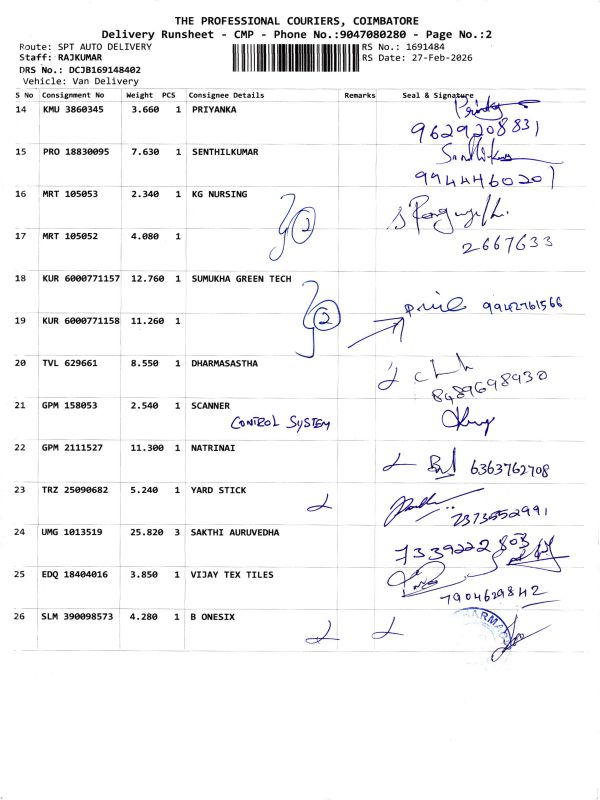 THE PROFESSIONAL COURIERS, COIMBATORE
Delivery Runsheet - CMP - Phone No.:9047080280 - Page No.:2
Route: SPT AUTO DELIVERY RS No.: 1691484
Staff: RAJKUMAR RS Date: 27-Feb-2026
DRS No.: DCJB169148402
Vehicle: Van Delivery
S No Consignment No Weight PCS Consignee Details Remarks Seal & Signature
14 KMU 3860345 3.660 1 PRIYANKA
9629208831
15 PRO 18830095 7.630 1 SENTHILKUMAR
9944460201
16 MRT 105053 2.340 1 KG NURSING
2
17 MRT 105052 4.080 1
2667633
18 KUR 6000771157 12.760 1 SUMUKHA GREEN TECH
9942761566
2
19 KUR 6000771158 11.260 1
20 TVL 629661 8.550 1 DHARMASASTHA
8489698930
21 GPM 158053 2.540 1 SCANNER
CONTROL SYSTEM
22 GPM 2111527 11.300 1 NATRINAI
6363762708
23 TRZ 25090682 5.240 1 YARD STICK
7373552991
24 UMG 1013519 25.820 3 SAKTHI AURUVEDHA
7339222803
25 EDQ 18404016 3.850 1 VIJAY TEX TILES
7904629842
26 SLM 390098573 4.280 1 B ONESIX